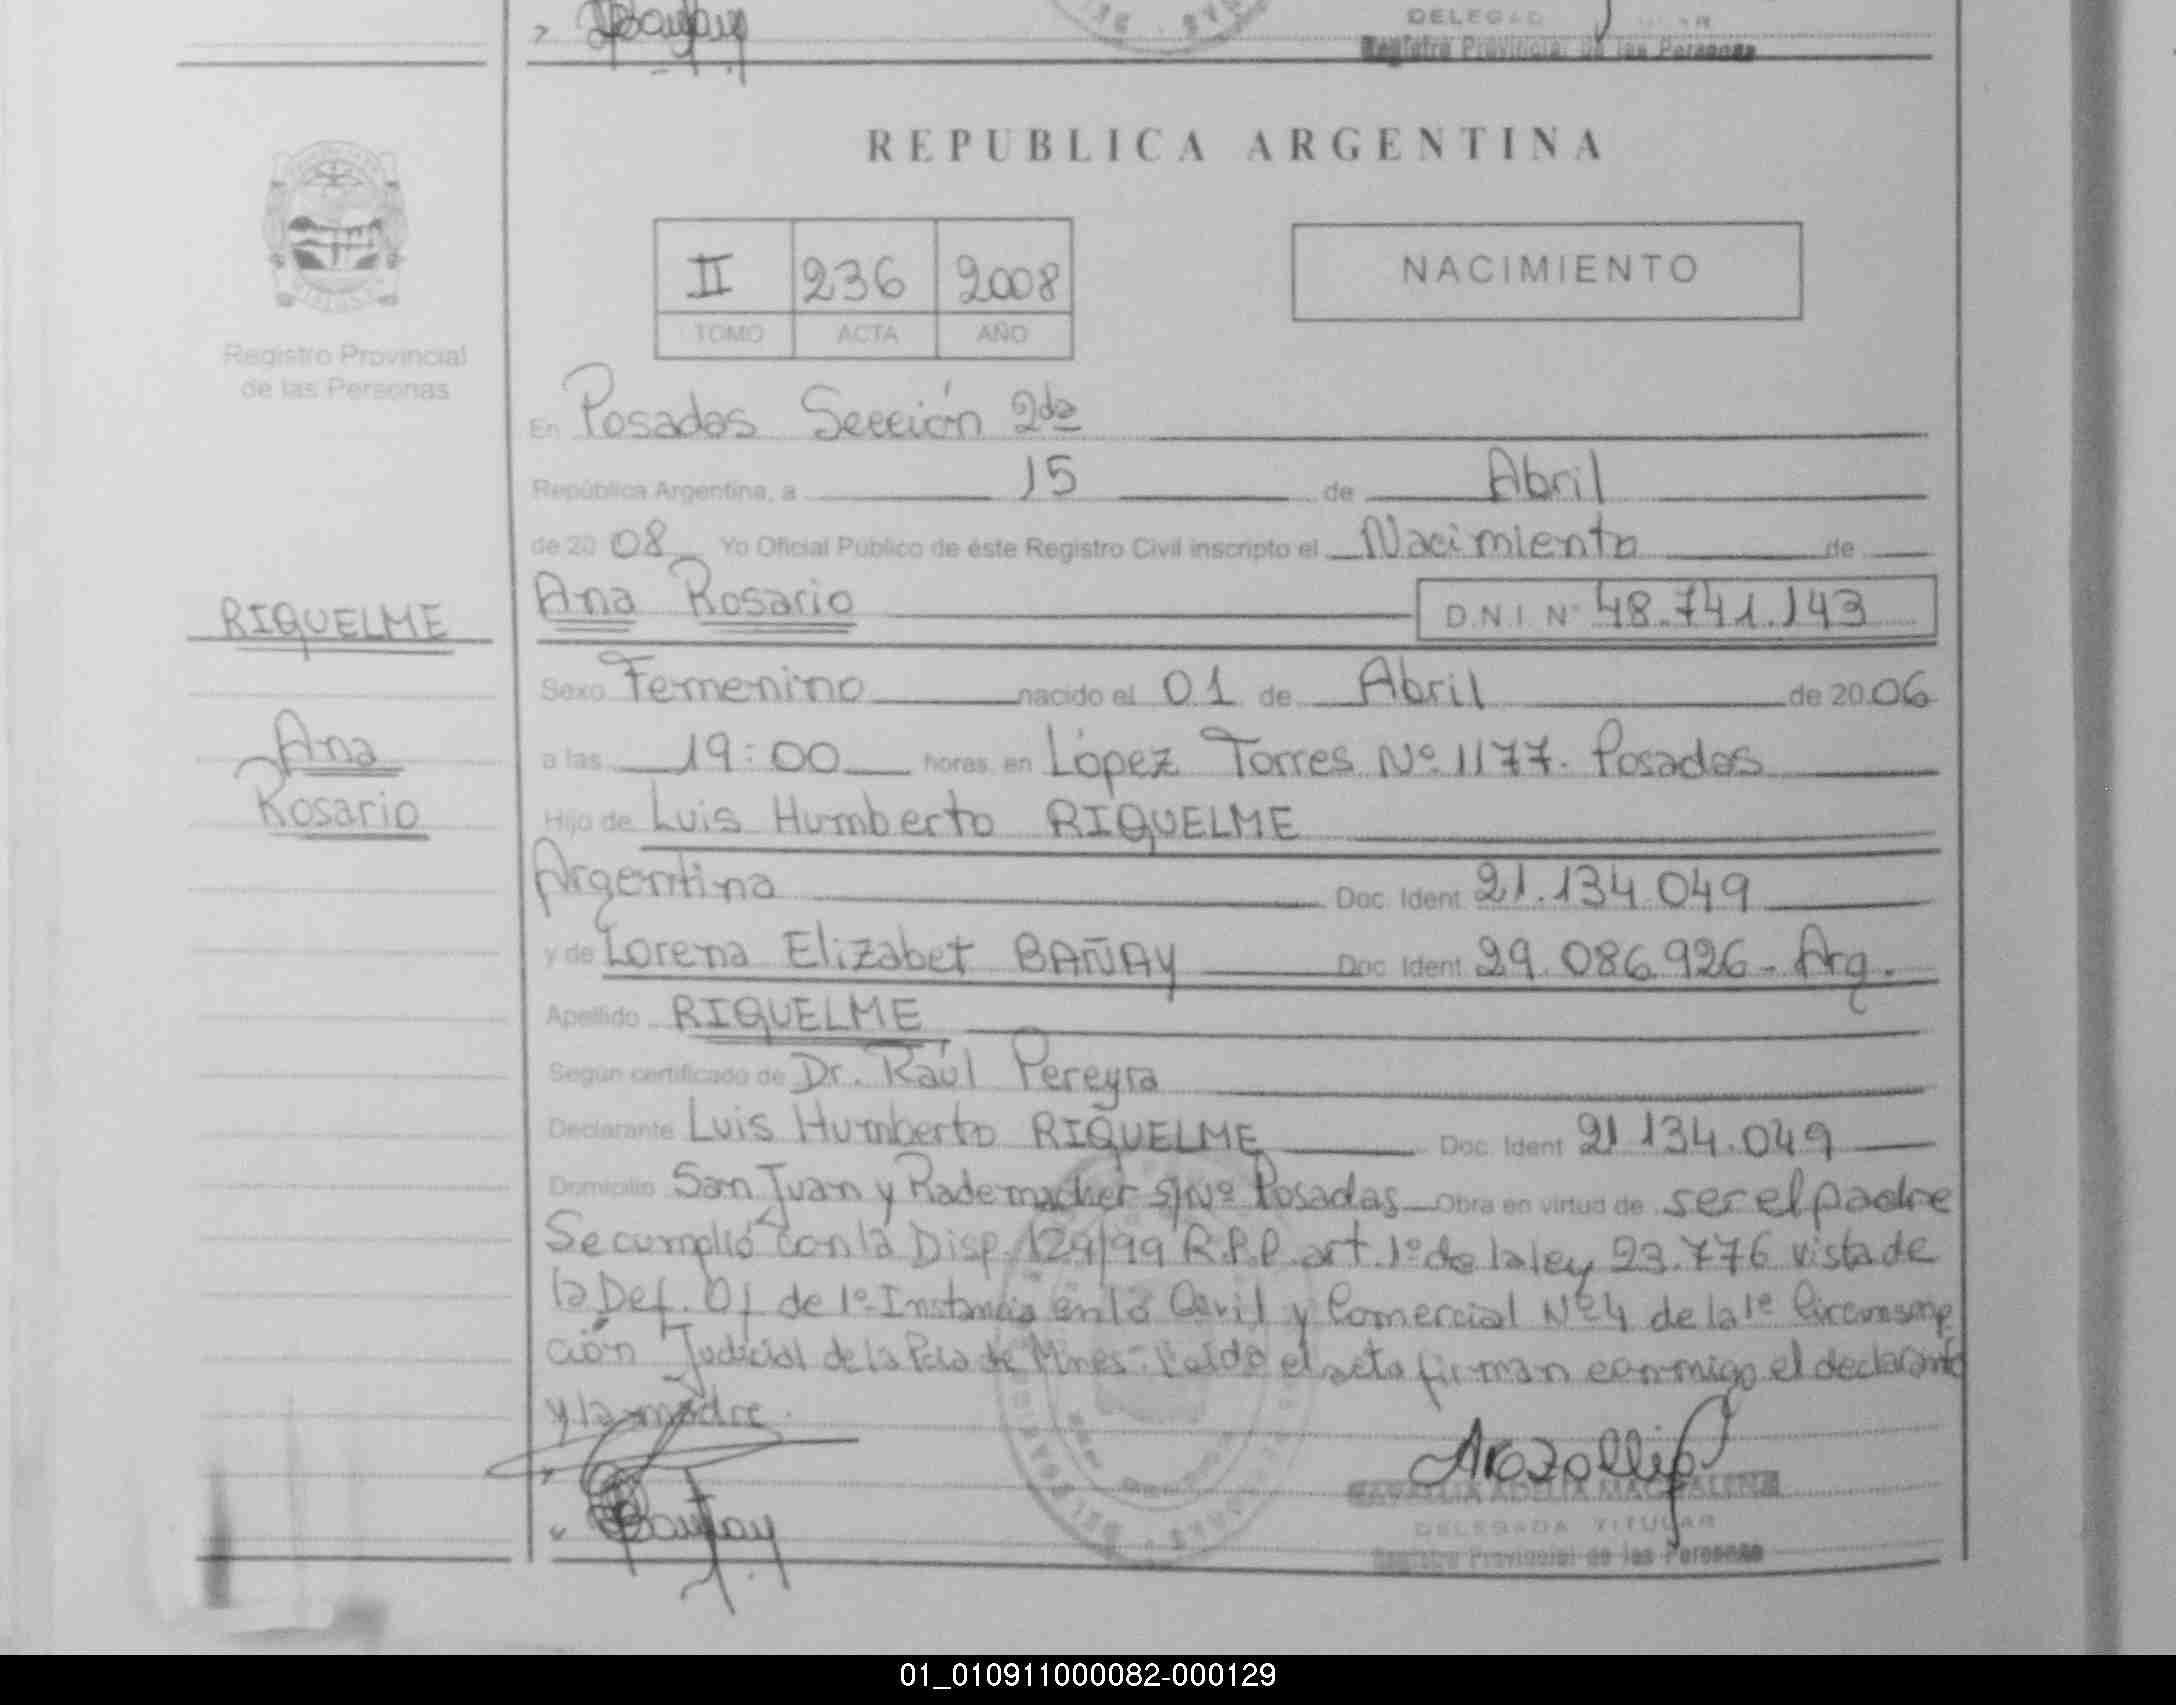 DELEGAD
Registro Provincial de las Personas
REPUBLICA ARGENTINA
II 236 2008
TOMO ACTA AÑO
NACIMIENTO
Registro Provincial
de las Personas
En Posadas Sección 2da
República Argentina, a 15 de Abril
de 20 08 Yo Oficial Público de éste Registro Civil inscripto el Nacimiento de
RIQUELME
Ana Rosario D.N.I. Nº 48.741.143
Sexo Femenino nacido el 01 de Abril de 20 06
Ana
Rosario
a las 19:00 horas, en López Torres Nº 1177. Posadas
Hijo de Luis Humberto RIQUELME
Argentina Doc. Ident 21.134.049
y de Lorena Elizabet BAÑAY Doc. Ident 29.086.926 - Arg.
Apellido RIQUELME
Según certificado de Dr. Raúl Pereyra
Declarante Luis Humberto RIQUELME Doc. Ident 21 134.049
Domicilio San Juan y Rademacher S/Nº Posadas Obra en virtud de ser el padre
Se cumplió con la Disp. 124/99 R.P.P. art. 1º de la ley 23.776 vista de
la Def. Of de 1º Instancia en lo Civil y Comercial Nº 4 de la 1º Circunscrip
ción Judicial de la Pcia de Mnes- Leído el acta firman conmigo el declarante
y la madre.
DELEGADA TITULAR
Registro Provincial de las Personas
01_010911000082-000129